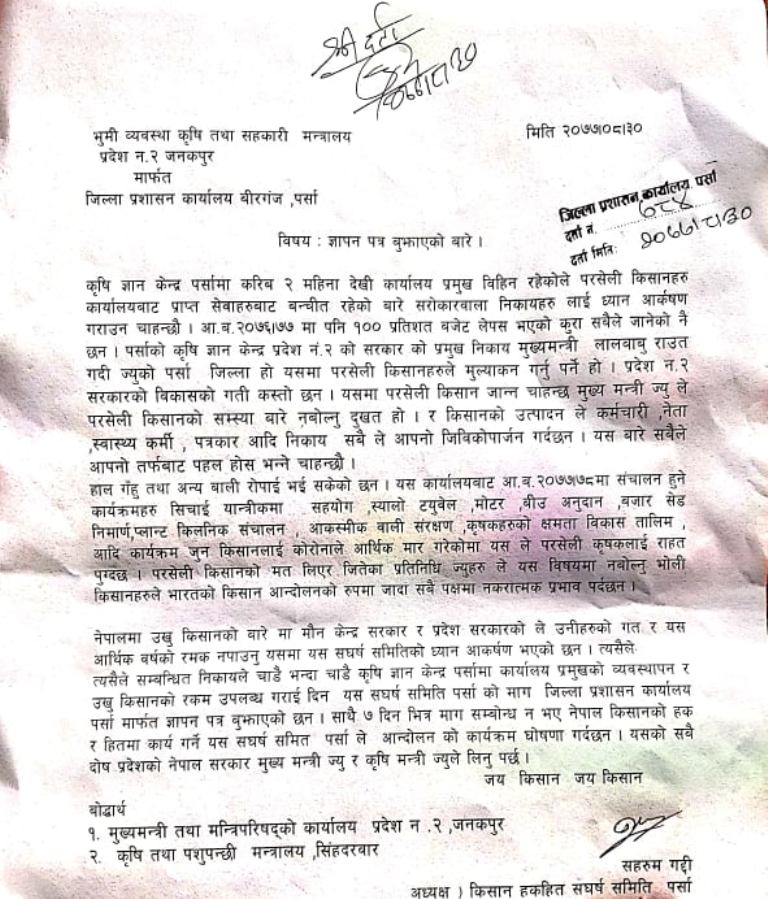 श्री दर्ता
२०७७।८।३०
भुमी व्यवस्था कृषि तथा सहकारी मन्त्रालय
मिति २०७७।०८।३०
प्रदेश न.२ जनकपुर
मार्फत
जिल्ला प्रशासन कार्यालय बीरगंज ,पर्सा
जिल्ला प्रशासन कार्यालय, पर्सा
दर्ता नं. ७८४
दर्ता मितिः २०७७।८।३०
विषय : ज्ञापन पत्र बुझाएको बारे ।
कृषि ज्ञान केन्द्र पर्सामा करिब २ महिना देखी कार्यालय प्रमुख विहिन रहेकोले परसेली किसानहरु
कार्यालयबाट प्राप्त सेवाहरुबाट बन्चीत रहेको बारे सरोकारवाला निकायहरु लाई ध्यान आर्कषण
गराउन चाहन्छौ । आ.ब.२०७६।७७ मा पनि १०० प्रतिशत बजेट लेपस भएको कुरा सबैले जानेको नै
छन । पर्साको कृषि ज्ञान केन्द्र प्रदेश नं.२ को सरकार को प्रमुख निकाय मुख्यमन्त्री लालवाबु राउत
गदी ज्युको पर्सा जिल्ला हो यसमा परसेली किसानहरुले मुल्याकन गर्नु पर्ने हो । प्रदेश न.२
सरकारको विकासको गती कस्तो छन । यसमा परसेली किसान जान्न चाहन्छ मुख्य मन्त्री ज्यु ले
परसेली किसानको समस्या बारे नबोल्नु दुखत हो । र किसानको उत्पादन ले कर्मचारी ,नेता
,स्वास्थ्य कर्मी , पत्रकार आदि निकाय सबै ले आपनो जिविकोपार्जन गर्दछन । यस बारे सबैले
आपनो तर्फबाट पहल होस भन्ने चाहन्छौ ।
हाल गँहु तथा अन्य बाली रोपाई भई सकेको छन । यस कार्यालयबाट आ.ब.२०७७।७८मा संचालन हुने
कार्यक्रमहरु सिचाई यान्त्रीकमा सहयोग ,स्यालो टयुवेल ,मोटर ,बीउ अनुदान ,बजार सेड
निमार्ण,प्लान्ट किलनिक संचालन , आकस्मीक वाली संरक्षण ,कृषकहरुको क्षमता विकास तालिम ,
आदि कार्यक्रम जुन किसानलाई कोरोनाले आर्थिक मार गरेकोमा यस ले परसेली कृषकलाई राहत
पुग्दछ । परसेली किसानको मत लिएर जितेका प्रतिनिधि ज्युहरु ले यस विषयमा नबोल्नु भोली
किसानहरुले भारतको किसान आन्दोलनको रुपमा जादा सबै पक्षमा नकरात्मक प्रभाव पर्दछन ।
नेपालमा उखु किसानको बारे मा मौन केन्द्र सरकार र प्रदेश सरकारको ले उनीहरुको गत र यस
आर्थिक बर्षको रमक नपाउनु यसमा यस सघर्ष समितिको ध्यान आकर्षण भएको छन । त्यसैले
त्यसैले सम्वन्धित निकायले चाडै भन्दा चाडै कृषि ज्ञान केन्द्र पर्सामा कार्यालय प्रमुखको व्यवस्थापन र
उखु किसानको रकम उपलब्ध गराई दिन यस सघर्ष समिति पर्सा को माग जिल्ला प्रशासन कार्यालय
पर्सा मार्फत ज्ञापन पत्र बुझाएको छन । साथै ७ दिन भित्र माग सम्बोन्ध न भए नेपाल किसानको हक
र हितमा कार्य गर्ने यस सघर्ष समित पर्सा ले आन्दोलन को कार्यक्रम घोषणा गर्दछन । यसको सबै
दोष प्रदेशको नेपाल सरकार मुख्य मन्त्री ज्यु र कृषि मन्त्री ज्युले लिनु पर्छ ।
जय किसान जय किसान
बोद्धार्थ
१. मुख्यमन्त्री तथा मन्त्रिपरिषद्को कार्यालय प्रदेश न .२ ,जनकपुर
२. कृषि तथा पशुपन्छी मन्त्रालय ,सिंहदरवार
सहरुम गद्दी
अध्यक्ष ) किसान हकहित सघर्ष समिति पर्सा